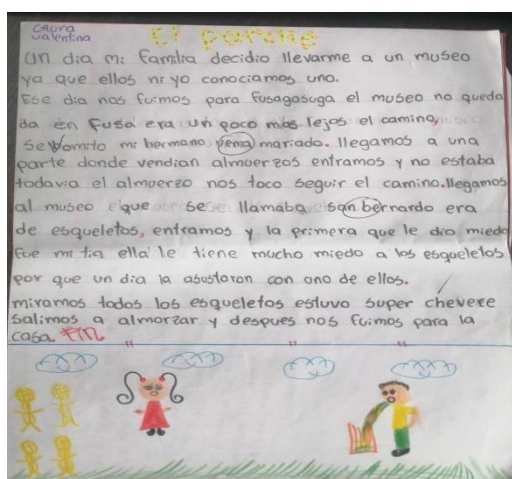 Laura
Valentina
El parche
Un dia mi familia decidio llevarme a un museo
ya que ellos ni yo conociamos uno.
Ese dia nos fuimos para fusagasuga el museo no queda
da en fusa era un poco mas lejos el camino,
se vomito mi hermano venia mariado. llegamos a una
parte donde vendian almuerzos entramos y no estaba
todavia el almuerzo nos toco seguir el camino. llegamos
al museo que se llamaba san bernardo era
de esqueletos, entramos y la primera que le dio miedo
fue mi tia ella le tiene mucho miedo a los esqueletos
por que un dia la asustaron con uno de ellos.
miramos todos los esqueletos estuvo super chevere
salimos a almorzar y despues nos fuimos para la
casa. FIN